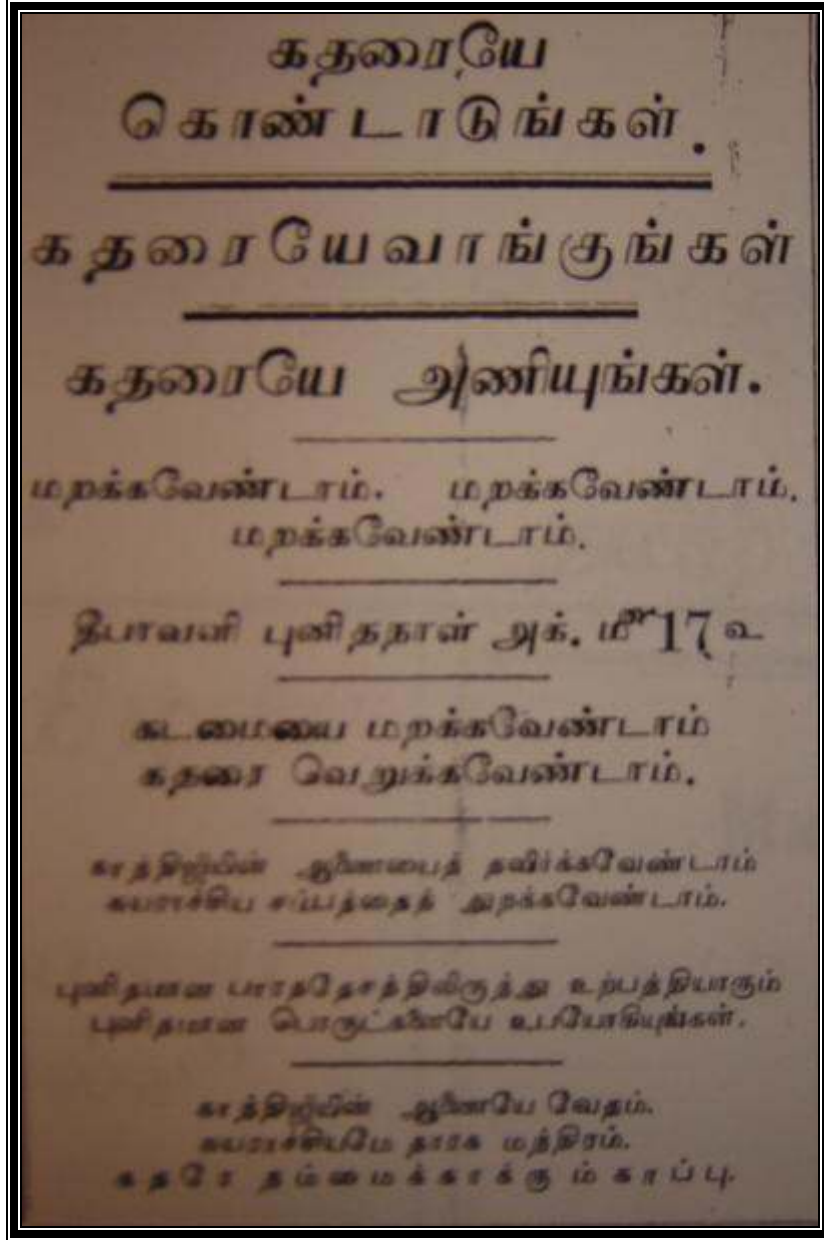 கதரையே
கொண்டாடுங்கள்.
கதரையேவாங்குங்கள்
கதரையே அணியுங்கள்.
மறக்கவேண்டாம். மறக்கவேண்டாம்.
மறக்கவேண்டாம்.
தீபாவளி புனிதநாள் அக். ௴17உ
கடமையை மறக்கவேண்டாம்
கதரை வெறுக்கவேண்டாம்.
காந்திஜீயின் ஆணையைத் தவிர்க்கவேண்டாம்
சுயராச்சிய சப்பத்தைத் துறக்கவேண்டாம்.
புனிதமான பாரததேசத்திலிருந்து உற்பத்தியாகும்
புனிதமான பொருட்களையே உபயோகியுங்கள்.
காந்திஜீயின் ஆணையே வேதம்.
சுயராச்சியமே தாரக மந்திரம்.
கதரே நம்மைக்காக்கும்காப்பு.